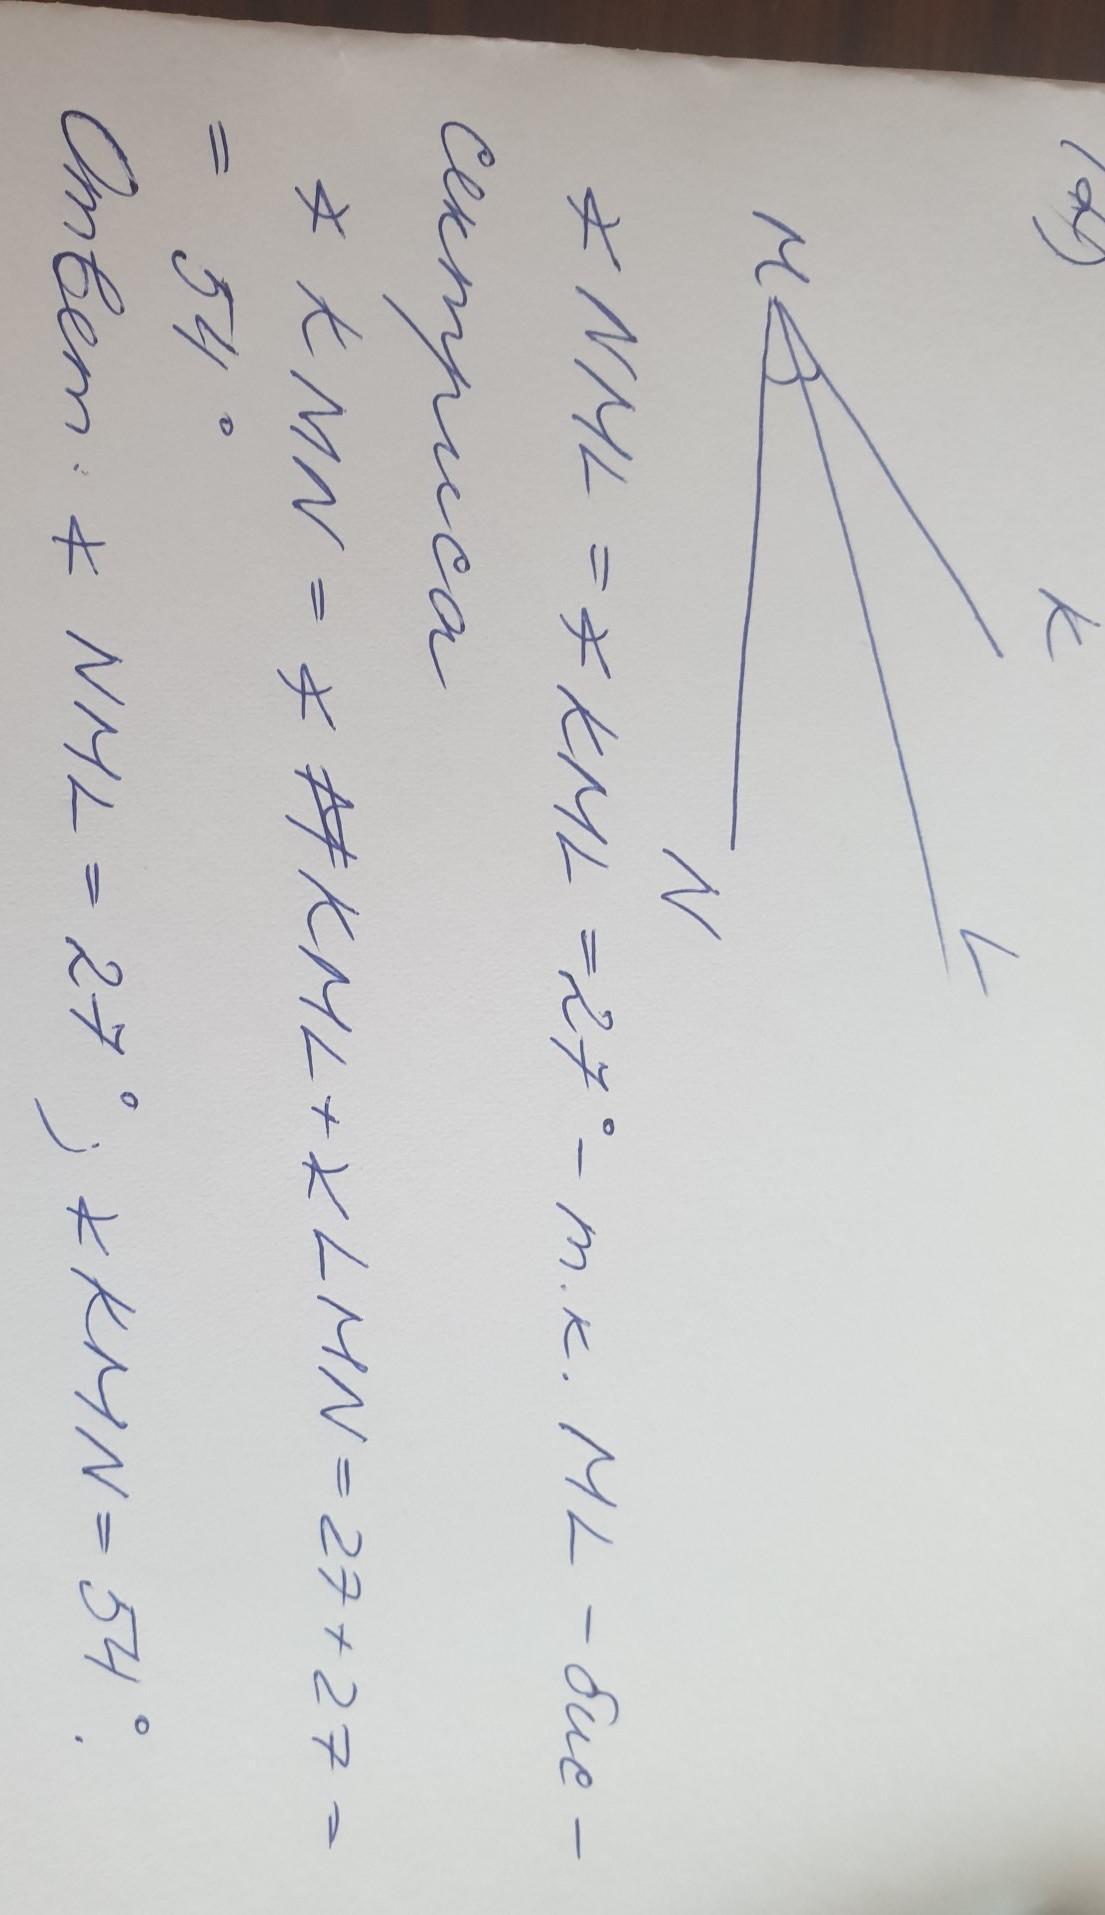 12)
K
M
L
N
∡ NML = ∡ KML = 27° - т.к. ML - бис-
сектриса
∡ KMN = ∡ KML + ∡ LMN = 27 + 27 =
= 54°
Ответ: ∡ NML = 27°, ∡ KMN = 54°.